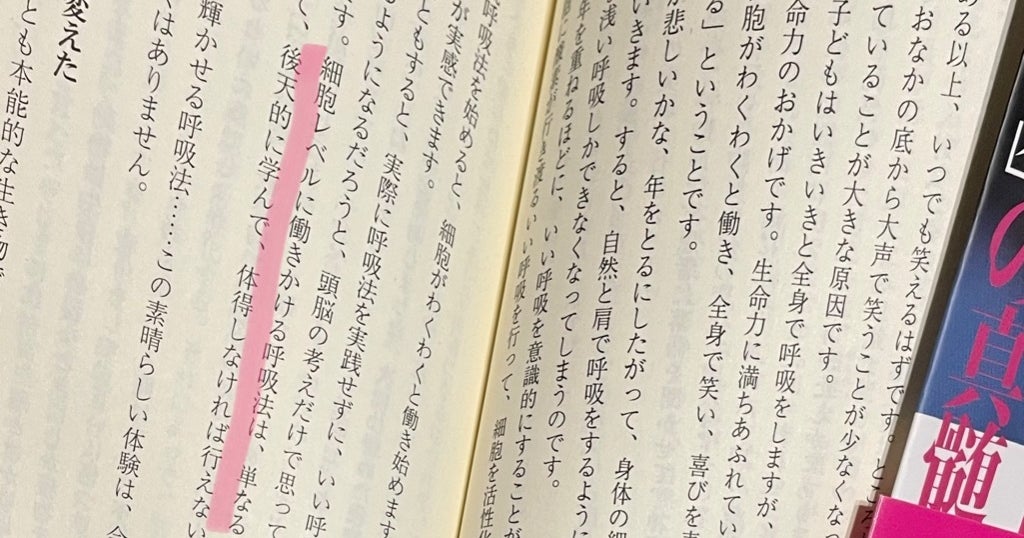 ある以上、いつでも笑えるはずです。ところ
おなかの底から大声で笑うことが少なくなっ
ていることが大きな原因です。
子どもはいきいきと全身で呼吸をしますが、
命力のおかげです。生命力に満ちあふれてい
胞がわくわくと働き、全身で笑い、喜びを表
る」ということです。
が悲しいかな、年をとるにしたがって、身体の細
いきます。すると、自然と肩で呼吸をするように
浅い呼吸しかできなくなってしまうのです。
年を重ねるほどに、いい呼吸を意識的にすることが
に酸素が行き渡るいい呼吸を行って、細胞を活性化
呼吸法を始めると、細胞がわくわくと働き始めます
が実感できます。
ともすると、実際に呼吸法を実践せずに、いい呼
るようになるだろうと、頭脳の考えだけで思って
す。細胞レベルに働きかける呼吸法は、単なる
て、後天的に学んで、体得しなければ行えない
輝かせる呼吸法……この素晴らしい体験は、今
くはありません。
変えた
とも本能的な生き物で
の真髄